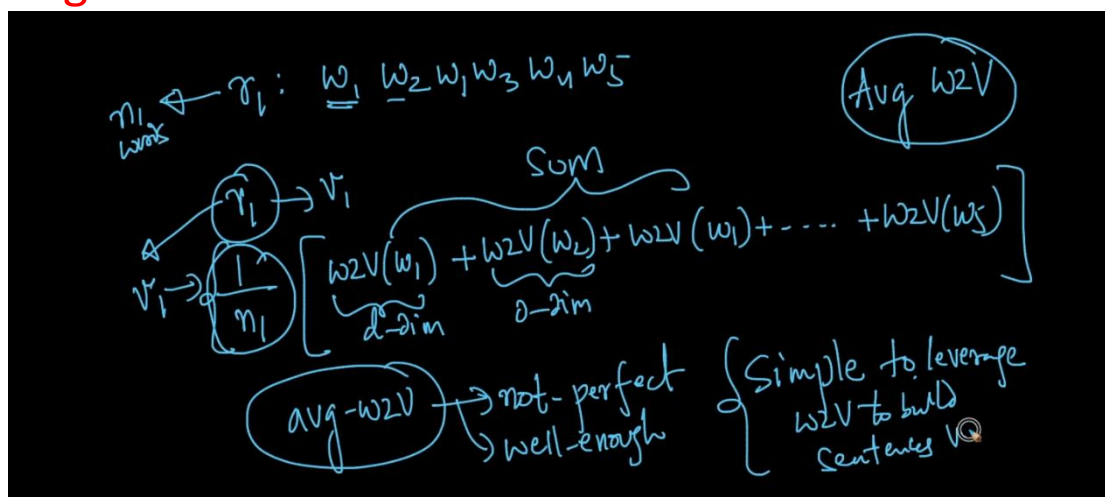 n₁ ← r₁ : w₁ w₂ w₁ w₃ w₄ w₅
words
Avg W2V
r₁ → v₁
Sum
v₁ → 1/n₁ [ w2v(w₁) + w2v(w₂) + w2v(w₁) + - - - - + w2v(w5) ]
d-dim
d-dim
avg-w2v → not-perfect
→ well-enough
Simple to leverage
w2v to build
sentences